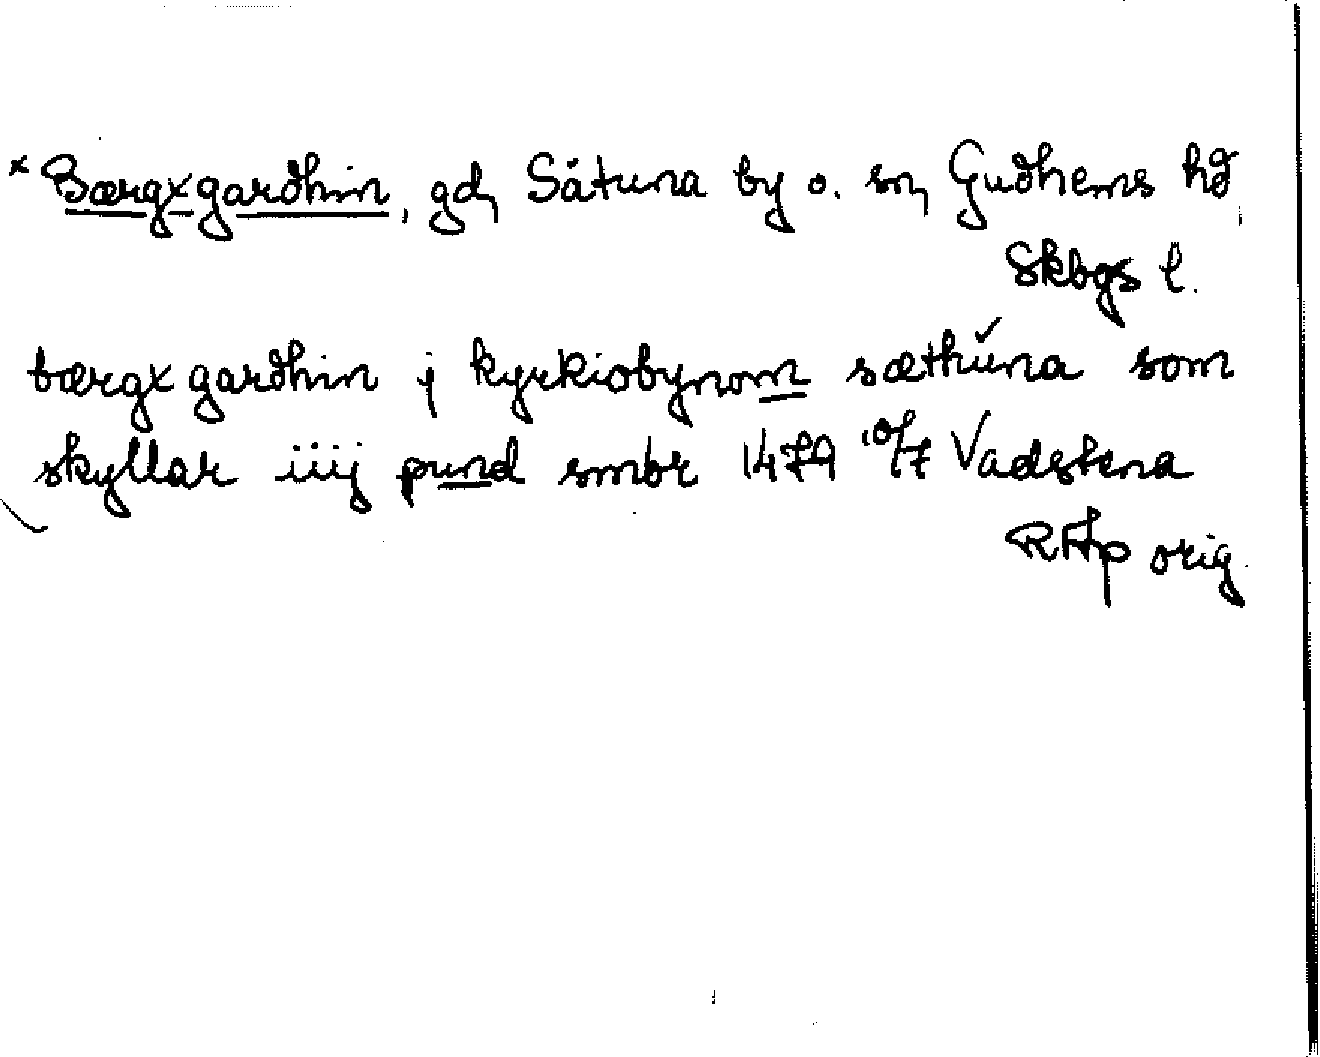 × Bærgxgarðhin, gd, Såtuna by o. sn, Guðhems hð,
Skbgs l.
bærgxgarðhin j kyrkiobynom sæthúna som
skyllar iiij pund smör 1479 10/7 Vadstena
RAp orig.